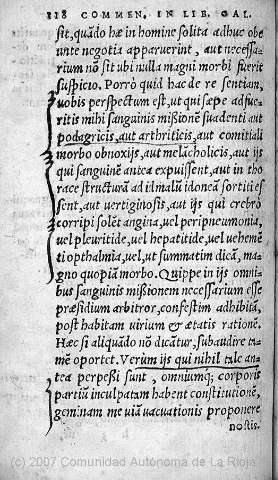 118 COMMEN. IN LIB. GAL.
sit, quãdo hæ in homine solita adhuc obe
unte negotia apparuerint, aut necessa-
rium nõ sit ubi nulla magni morbi fuerit
suspicio. Porrò quid hac de re sentiam,
uobis perspectum est, ut qui sæpe adfue-
ritis mihi sanguinis missionẽ suadenti aut
podagricis, aut arthriticis, aut comitiali
morbo obnoxijs, aut melãcholicis, aut ijs
qui sanguinẽ antea expuissent, aut in tho
race structurã ad id malũ idoneã sortiti es
sent, aut vertiginosis, aut ijs qui crebrò
corripi solẽt angina, uel peripneumonia,
uel pleuritide, uel hepatitide, uel uehemẽ
ti opthalmia, uel, ut summatim dicã, ma-
gno quopiã morbo. Quippe in ijs omni-
bus sanguinis missionem necessarium esse
præsidium arbitror, confestim adhibitã,
post habitam uirium & ætatis rationẽ.
Hæc si aliquãdo nõ dicãtur, subaudire ta-
mẽ oportet. Verum ijs qui nihil tale an-
tea perpessi sunt, omniumq; corporis
partiũ inculpatam habent constitutionẽ,
geminam me uiã uacuationis proponere
nostis.
(c) 2007 Comunidad Autónoma de La Rioja